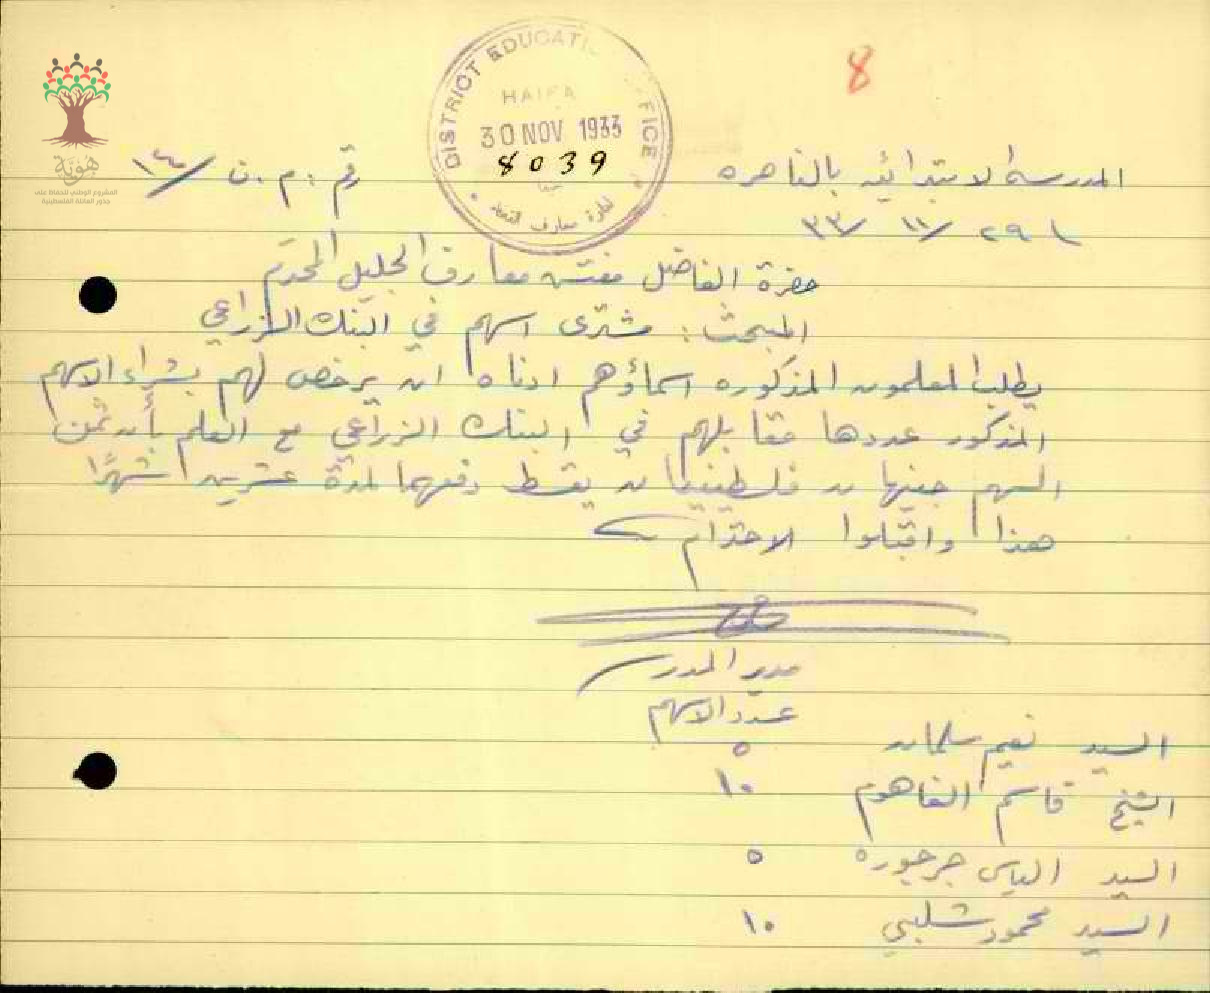 8
DISTRICT EDUCATI FICE
HAIFA
30 NOV 1933
8039
هوية
المشروع الوطني للحفاظ على
جذور العائلة الفلسطينية
المدرسة الابتدائيه بالناصره
رقم : م . ن /
٢٩ / ١١ / ٣٣
حضرة الفاضل مفتش معارف الجليل المحترم
المبحث : مشترى اسهم في البنك الزراعي
يطلب المعلمون المذكوره اسماؤهم ادناه ان يرخص لهم بشراء الاسهم
المذكور عددها مقابلهم في البنك الزراعي مع العلم بأن ثمن
السهم جنيهان فلسطينيان يقسط دفعهما لمدة عشرين شهرًا
هذا واقبلوا الاحترام
مدير المدرسة
عدد الاسهم
السيد نعيم سلمان ٥
الشيخ قاسم الفاهوم ١٠
السيد الياس جرجوره ٥
السيد محمود شلبي ١٠